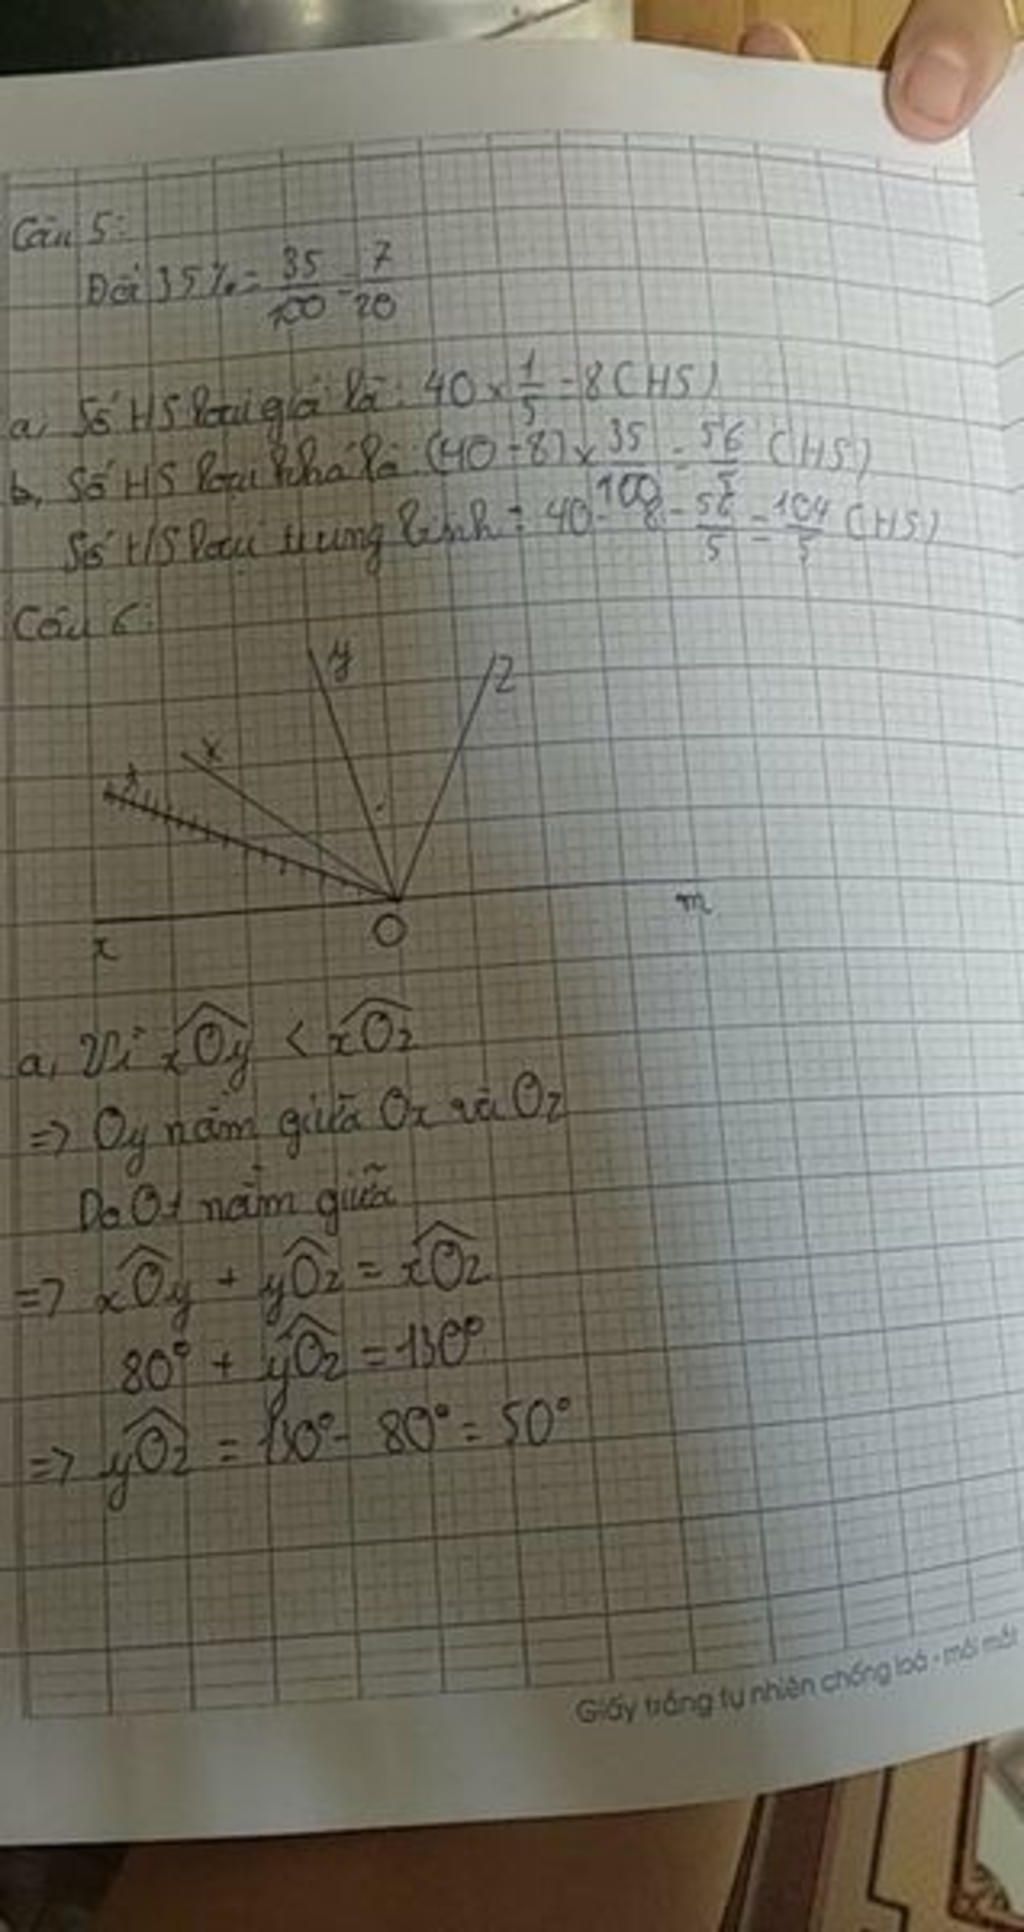 Câu 5:
Đổi 35% = 35/100 = 7/20
a, Số HS loại giỏi là: 40 × 1/5 = 8 (HS)
b, Số HS loại khá là: (40 - 8) × 35/100 = 56/5 (HS)
Số HS loại trung bình = 40 - 8 - 56/5 = 104/5 (HS)
Câu 6:
y
z
t
x
O
m
a, Vì xOy < xOz
=> Oy nằm giữa Ox và Oz
Do Ot nằm giữa
=> xOy + yOz = xOz
80° + yOz = 130°
=> yOz = 130° - 80° = 50°
Giấy trắng tự nhiên chống loá - mỏi mắt